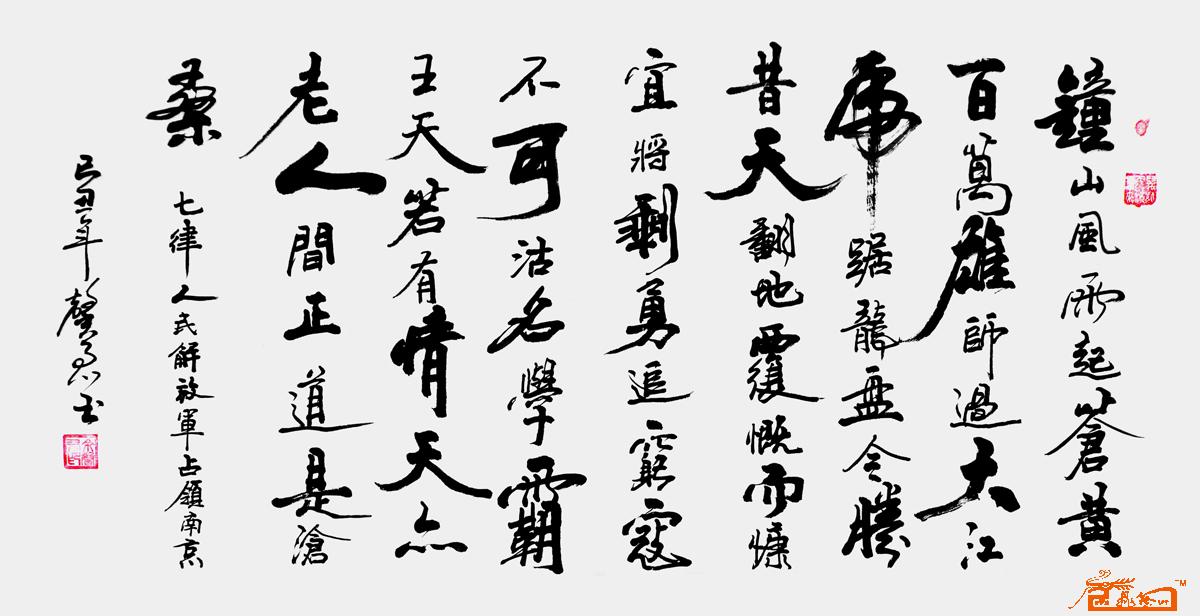 鐘山風雨起蒼黃
百萬雄師過大江
虎踞龍盘今勝
昔天翻地覆慨而慷
宜將剩勇追窮寇
不可沽名學霸
王天若有情天亦
老人間正道是滄
桑
七律人民解放軍占領南京
己丑年馨书